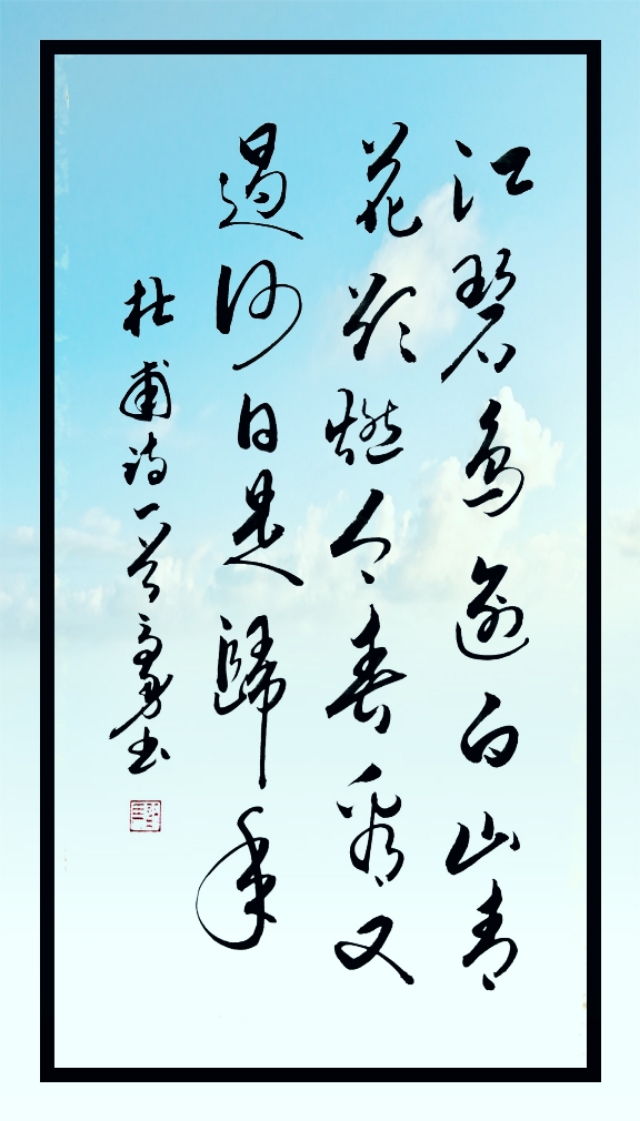 江碧鳥逾白山青
花欲燃今春看又
過何日是歸年
杜甫詩一首